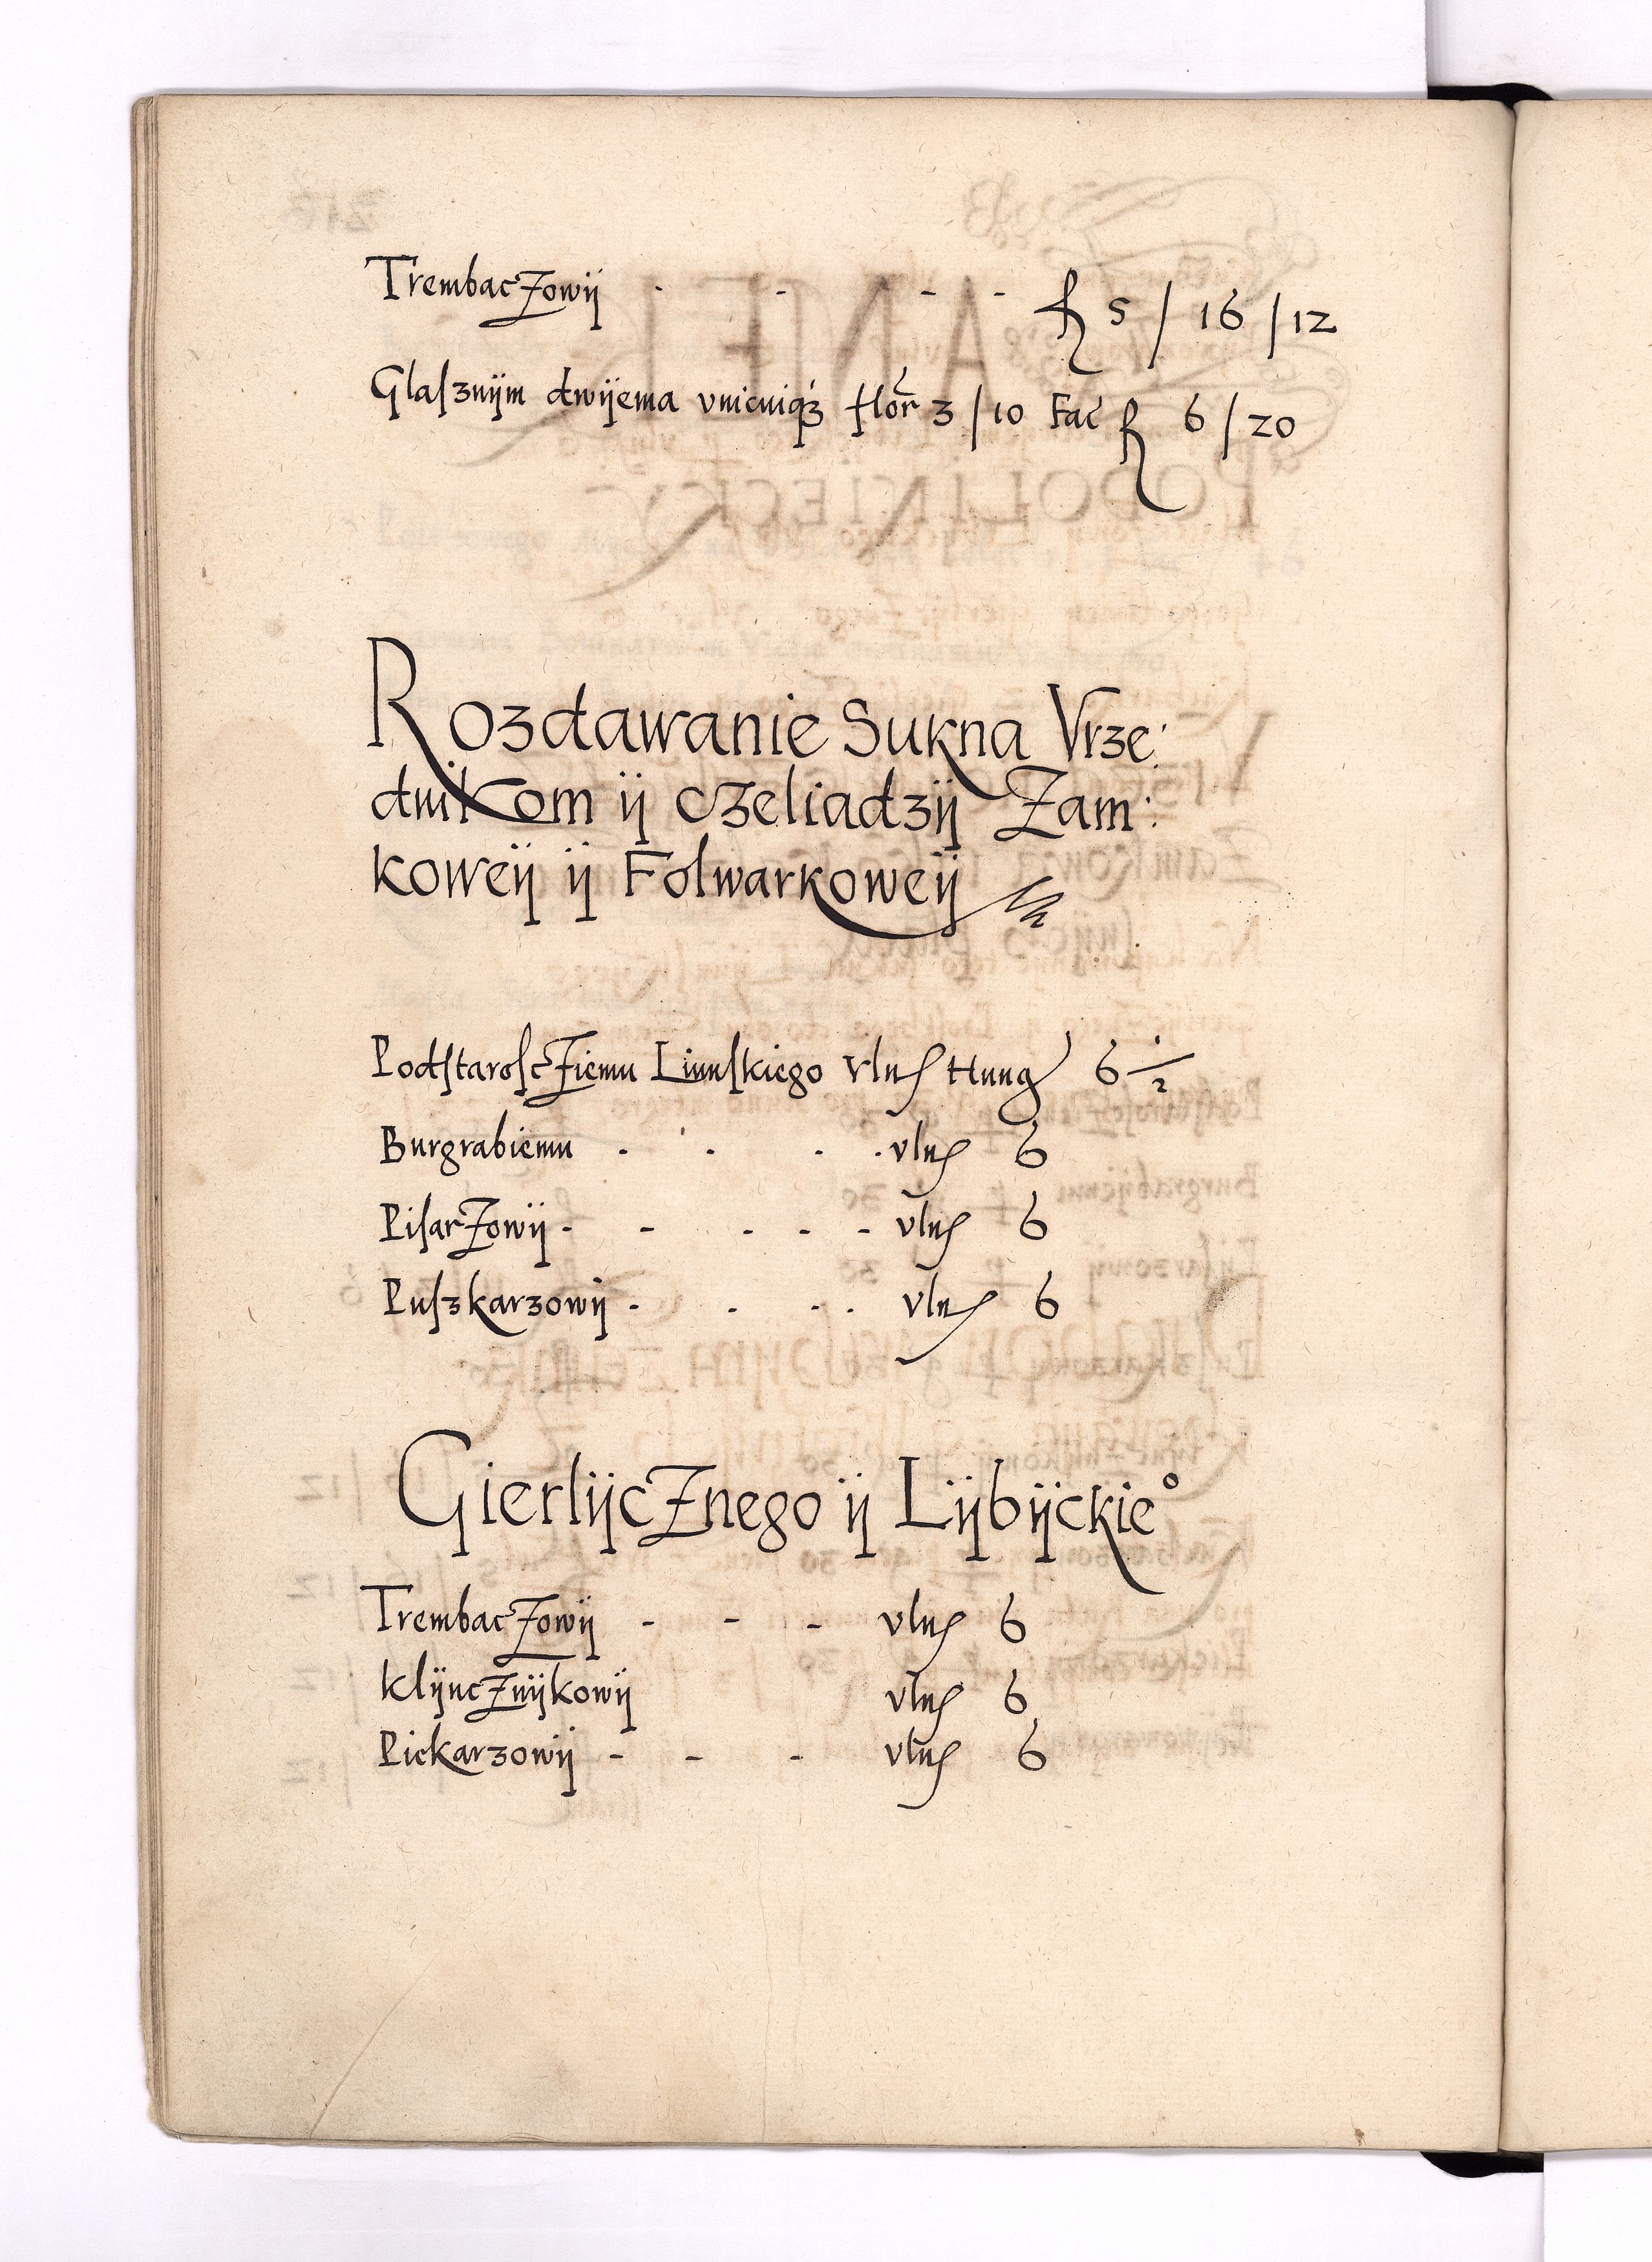 TrembacZowÿ - - - - fl 5 / 16 / 12
Glaſznÿm dwÿema vnicuiqз flor 3 / 10 Fac fl 6 / 20
Rozdawanie Sukna Vrze:
dnikom ÿ czeliadzÿ Zam:
koweÿ ÿ Folwarkoweÿ
PodſtaroſcZiemu Linnſkiego Vln Hung 6 1/2
Burgrabiemu . . . . vln 6
PiſarZowÿ - - - - - vln 6
Puſzkarzowÿ . . . . vln 6
GierlÿcZnego ÿ Lÿbÿckie°
TrembacZowÿ - - - vln 6
KlÿucZnÿkowÿ vln 6
Piekarzowÿ - - - vln 6